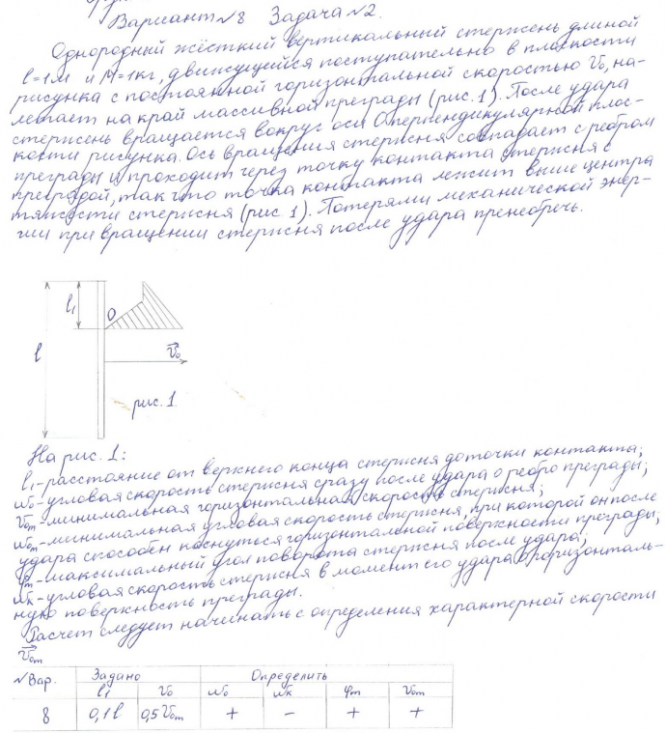 Вариант №8 Задача №2.
Однородный жёсткий вертикальный стержень длиной
l=1м и M=1кг, движущейся поступательно в плоскости
рисунка с постоянной горизонтальной скоростью V₀, на-
летает на край массивной преграды (рис. 1). После удара
стержень вращается вокруг оси О перпендикулярной плос-
кости рисунка. Ось вращения стержня совпадает с ребром
преграды и проходит через точку контакта стержня с
преградой, так что точка контакта лежит выше центра
тяжести стержня (рис 1). Потерями механической энер-
гии при вращении стержня после удара пренебречь.
l₁
O
l
V₀
рис. 1
На рис. 1:
l₁ - расстояние от верхнего конца стержня до точки контакта;
ω₀ - угловая скорость стержня сразу после удара о ребро преграды;
V₀m - минимальная горизонтальная скорость стержня;
ω₀m - минимальная угловая скорость стержня, при которой он после
удара способен коснуться горизонтальной поверхности преграды;
φm - максимальный угол поворота стержня после удара;
ωк - угловая скорость стержня в момент его удара о горизонталь-
ную поверхность преграды.
Расчет следует начинать с определения характерной скорости
V₀m
№ Вар. Задано Определить
l₁ V₀ ω₀ ωк φm V₀m
8 0,1l 0,5V₀m + - + +